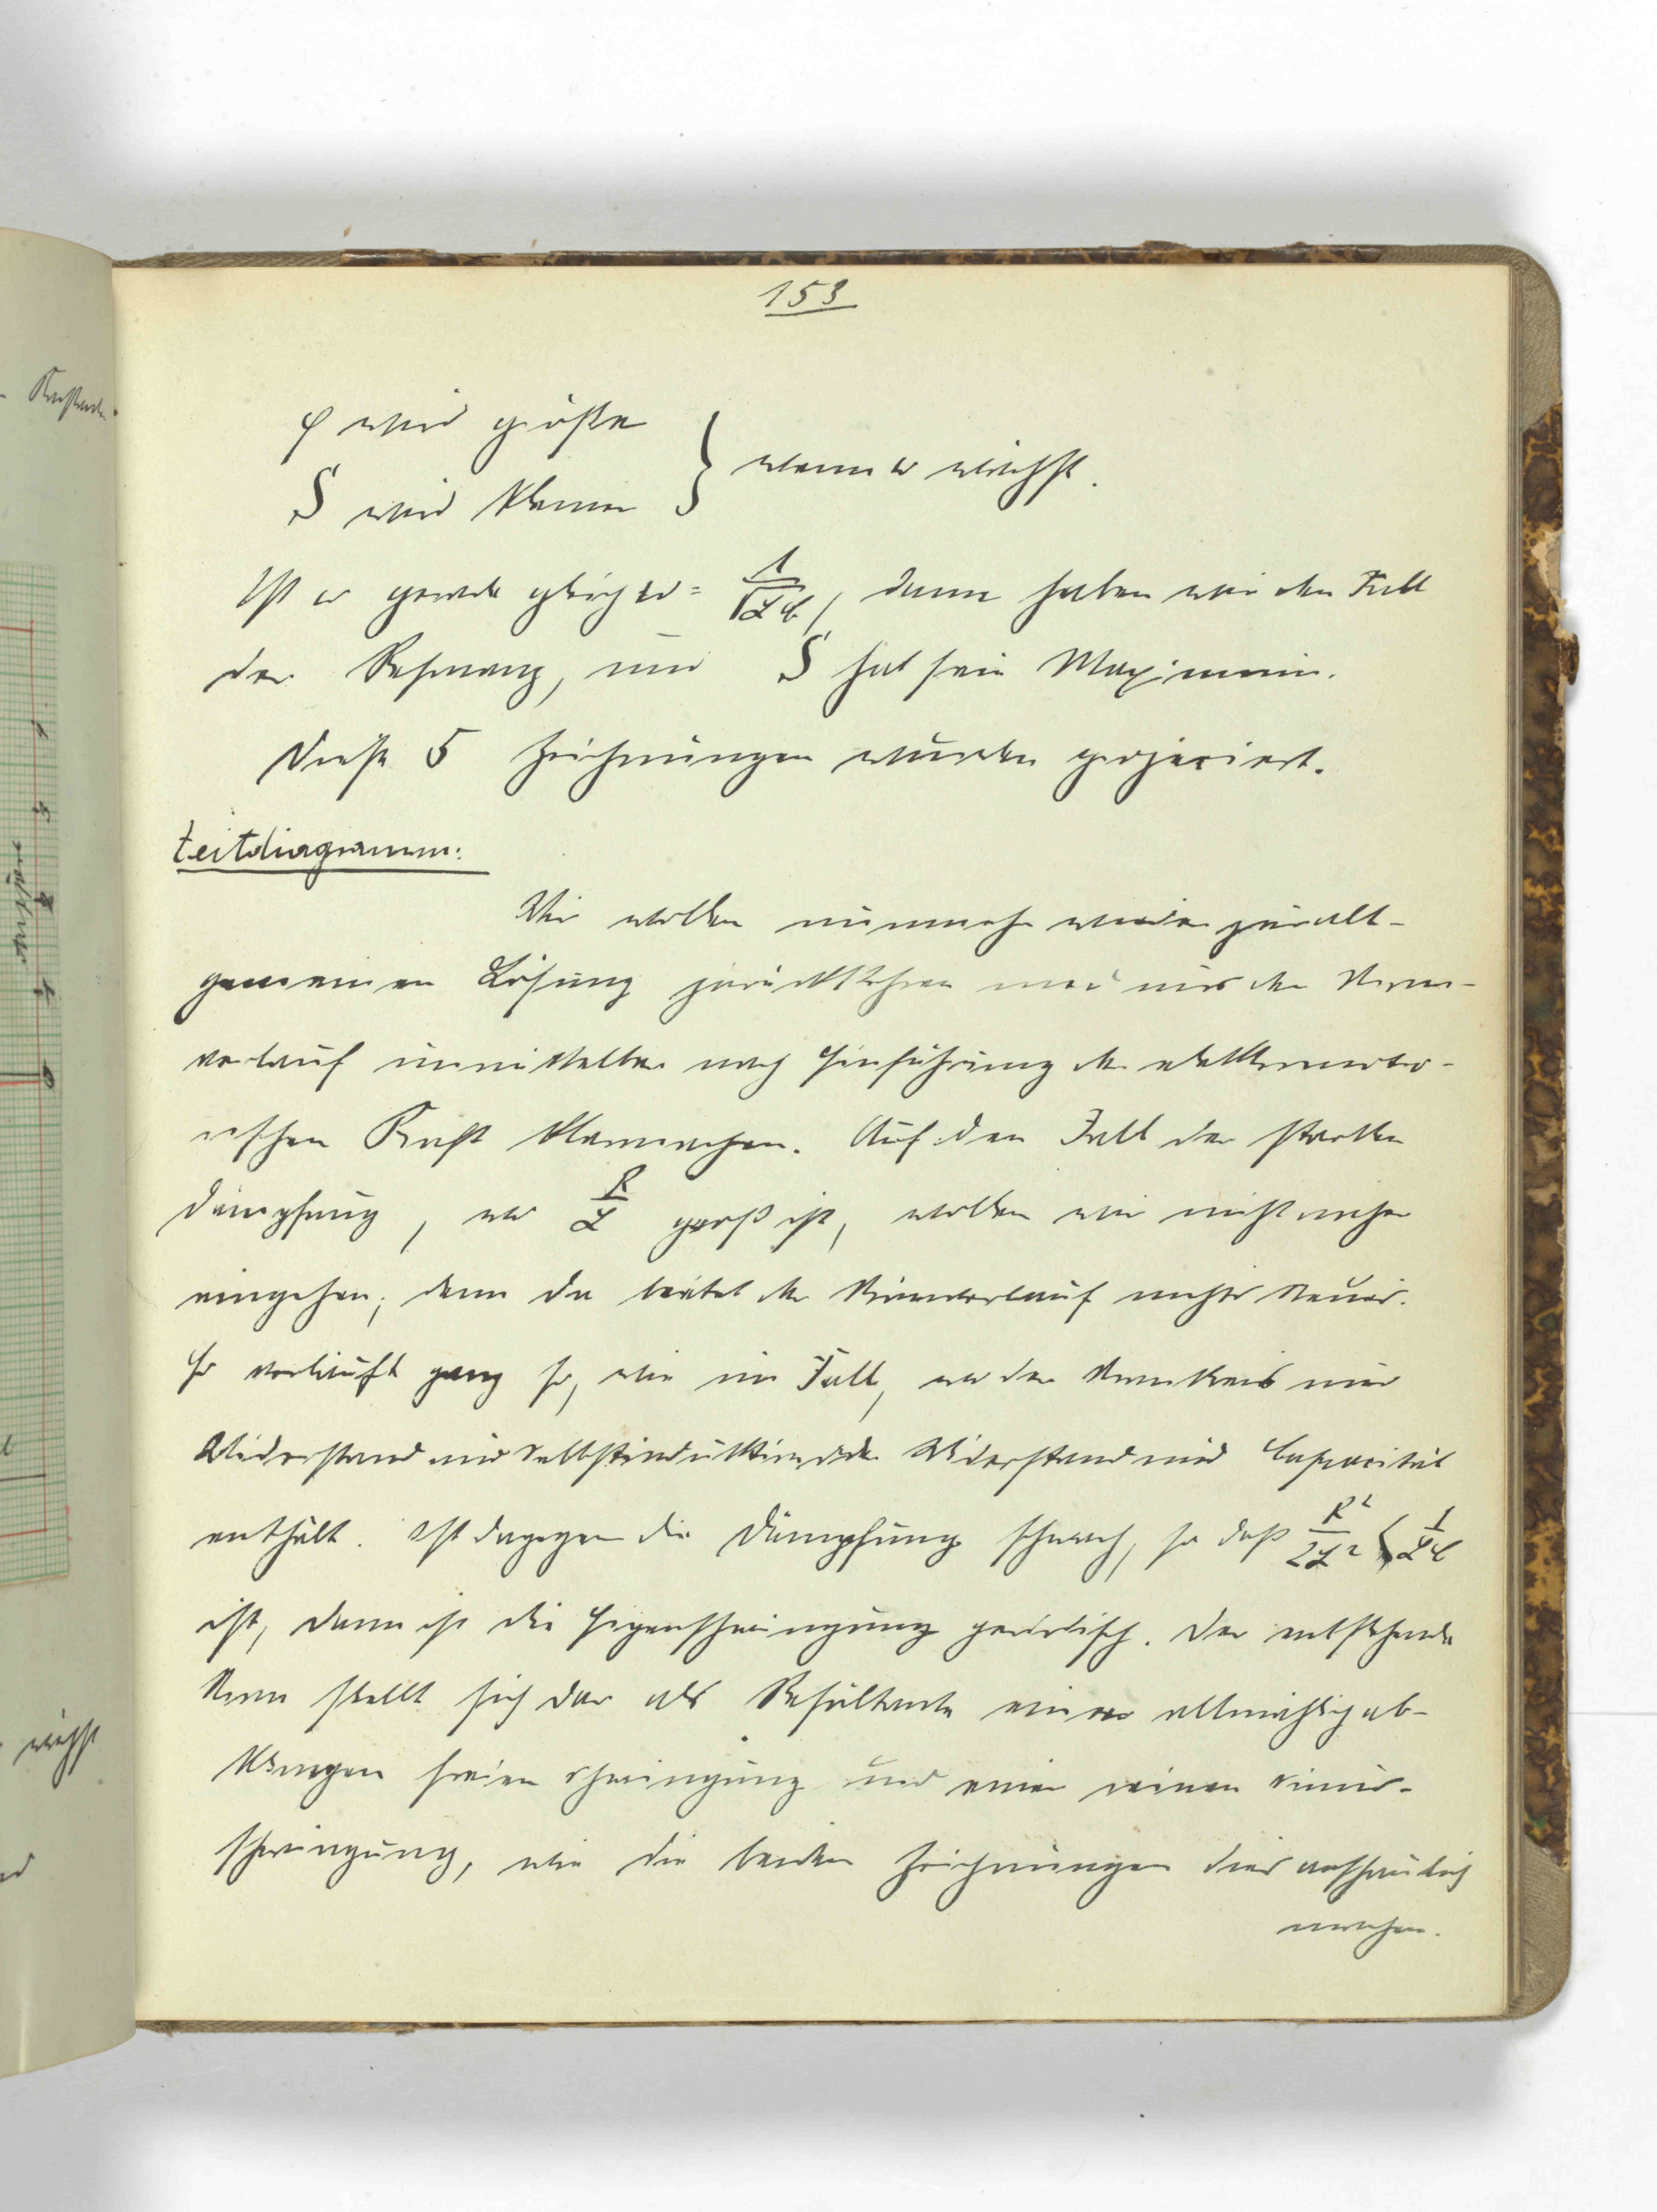 153
φ wird größer
S wird kleiner } wenn ω wächst.
Ist ω gerade gleich ω = 1/√LC, dann haben wir den Fall
der Resonanz, und S hat sein Maximum.
Diese 5 Zeichnungen wurden projeciert.
Zeitdiagramm:
Wir wollen nunmehr wieder zur all-
gemeinen Lösung zurückkehren und uns den Strom-
verlauf unmittelbar nach Einführung der elektromoto-
rischen Kraft klarmachen. Auf den Fall der starken
Dämpfung, wo R/L groß ist, wollen wir nicht näher
eingehen; denn da bietet der Stromverlauf nichts Neues.
Er verläuft ganz so, wie im Fall, wo der Stromkreis nur
Widerstand und Selbstinduktion oder Widerstand und Capacität
enthält. Ist dagegen die Dämpfung schwach, so daß R²/2L² < 1/LC
ist, dann ist die Eigenschwingung periodisch. Der entstehende
Strom stellt sich dar als Resultante einer allmählich ab-
klingen freien Schwingung und einer reinen Sinus-
schwingung, wie die beiden Zeichnungen dies anschaulich
machen.
wächst